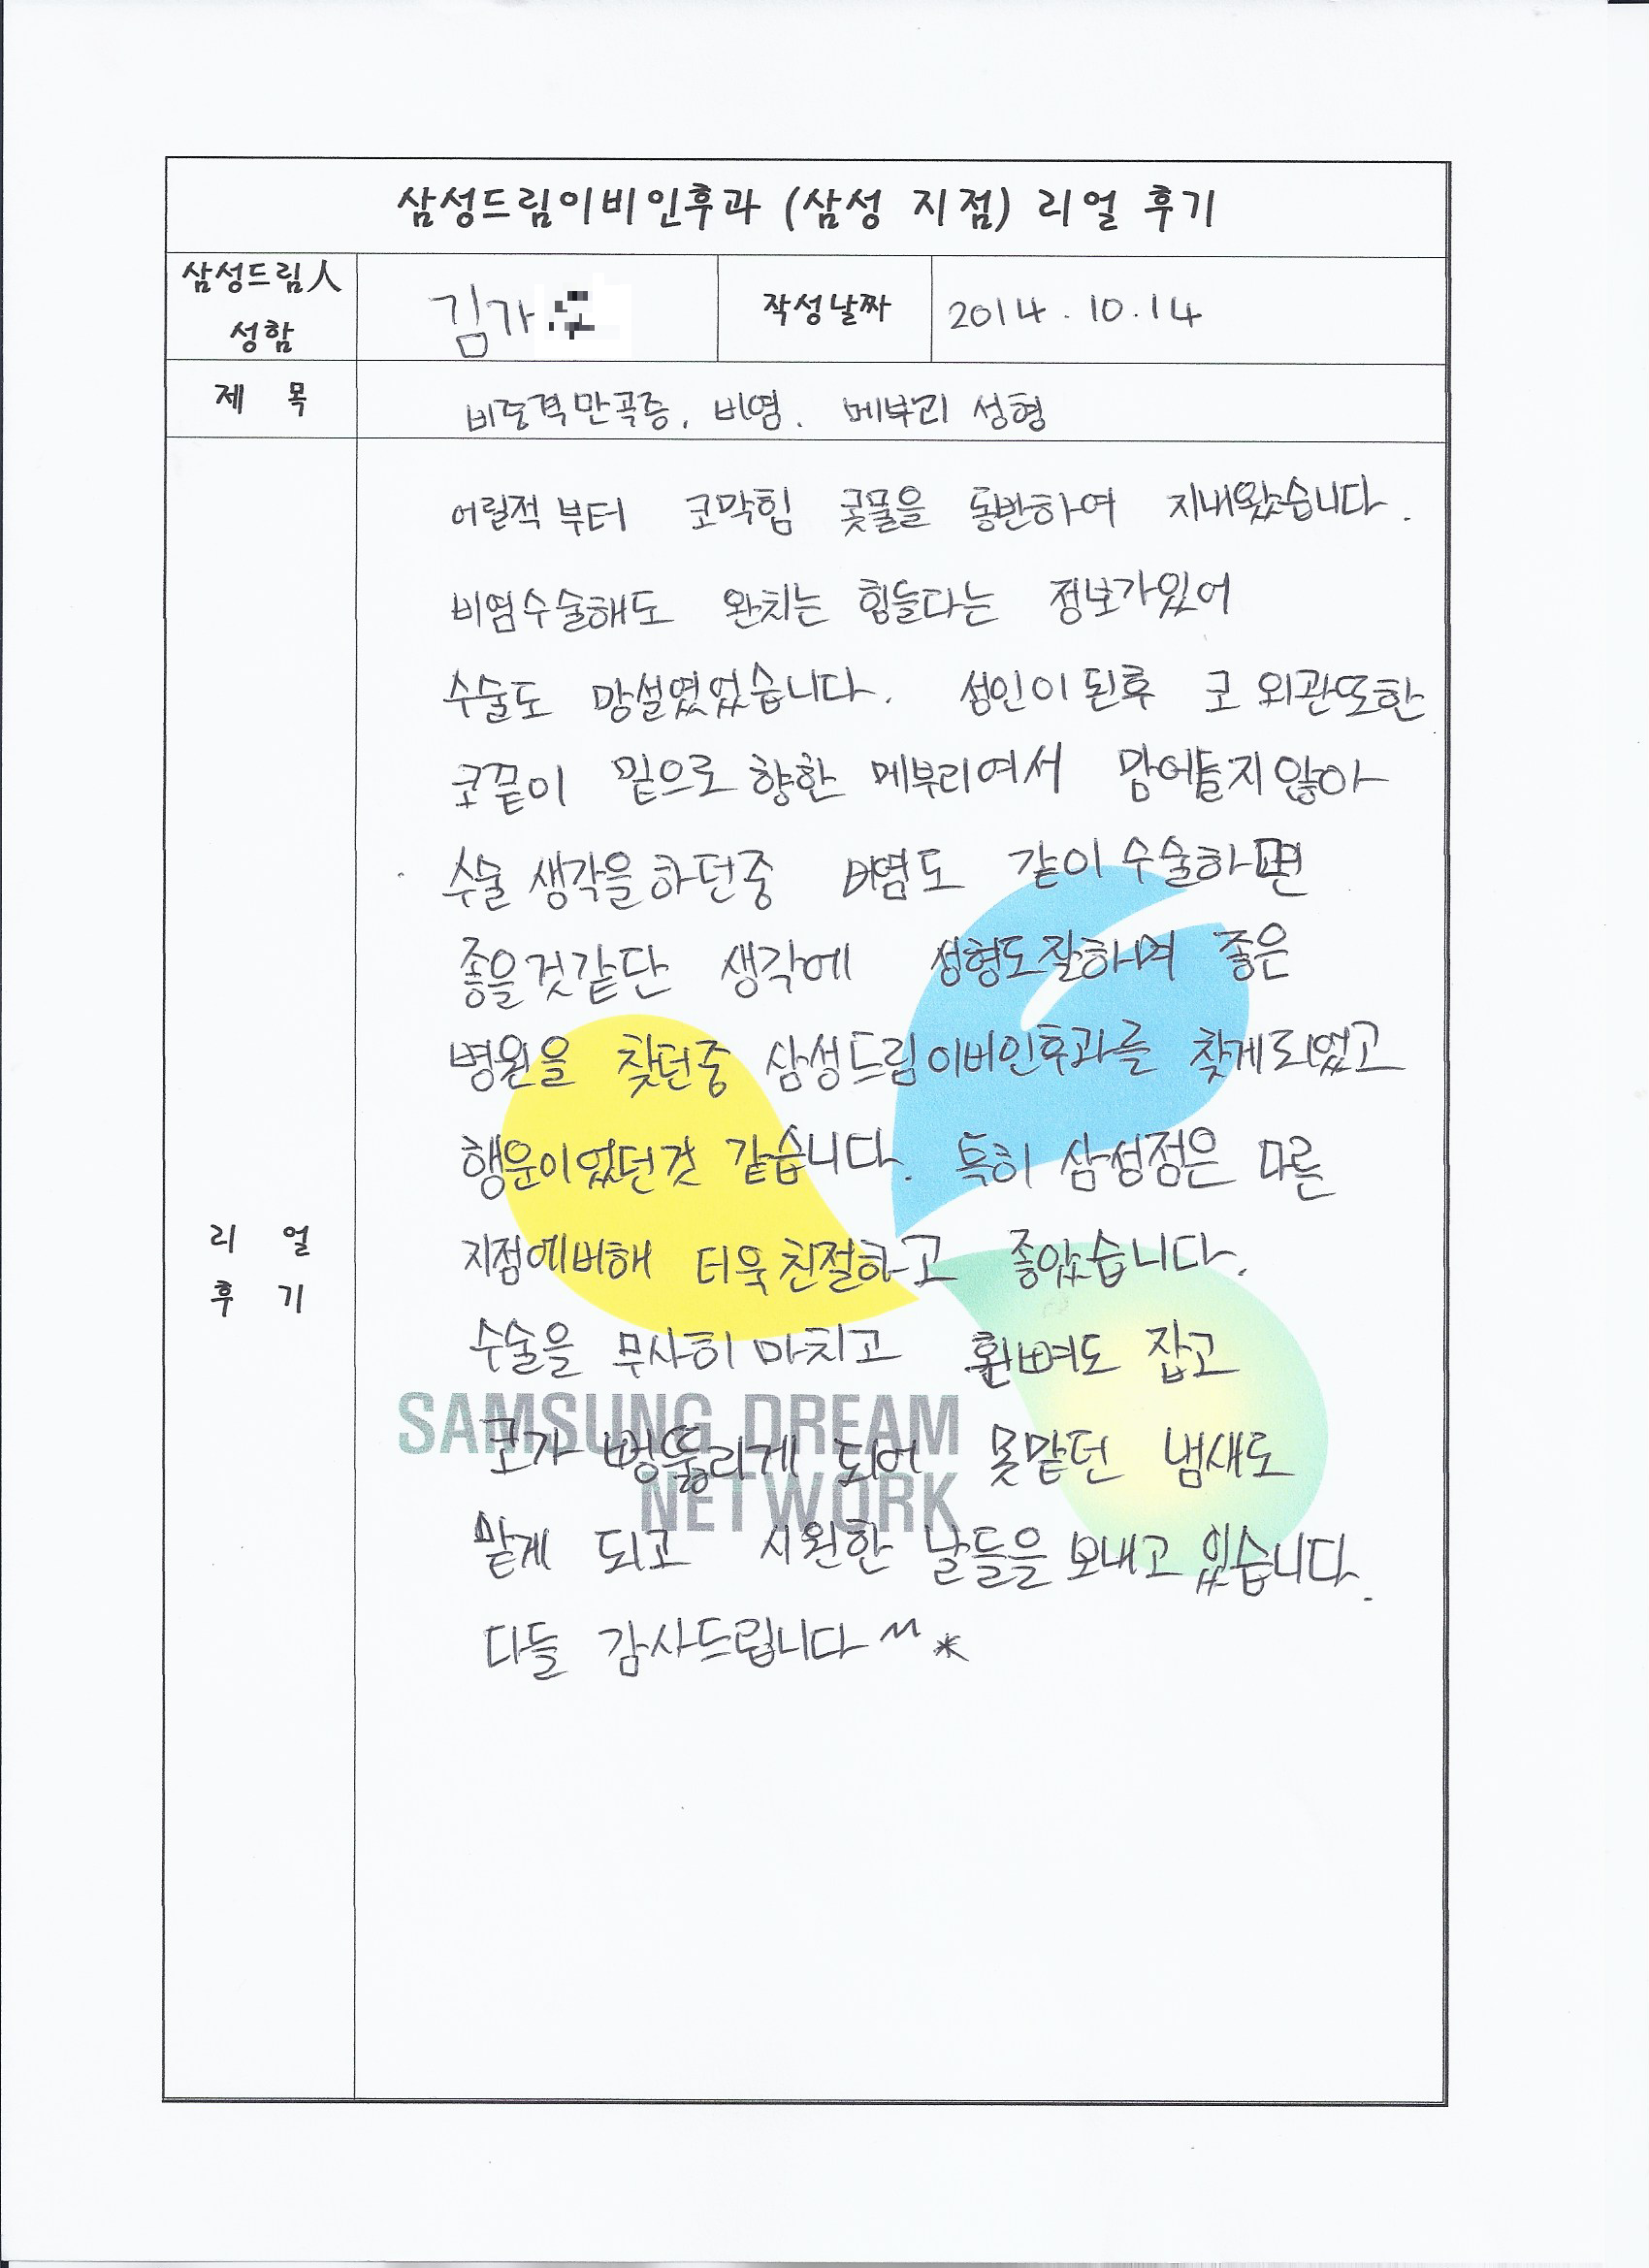 삼성드림이비인후과 (삼성 지점) 리얼 후기
삼성드림人
성함
김가
작성날짜
2014.10.14
제 목
비중격만곡증, 비염. 메부리 성형
어릴적 부터 코막힘 콧물을 동반하여 지내왔습니다.
비염수술해도 완치는 힘들다는 정보가있어
수술도 망설였었습니다. 성인이 된후 코 외관또한
코끝이 밑으로 향한 메부리여서 맘에들지않아
수술 생각을 하던중 비염도 같이 수술하면
좋을것같단 생각에 성형도잘하며 좋은
병원을 찾던중 삼성드림이비인후과를 찾게되었고
행운이었던것 같습니다. 특히 삼성점은 다른
지점에비해 더욱 친절하고 좋았습니다.
수술을 무사히 마치고 휜뼈도 잡고
코가 뻥뚫리게 되어 못맡던 냄새도
맡게 되고 시원한 날들을 보내고 있습니다.
다들 감사드립니다 ^^ *
리 얼
후 기
SAMSUNG DREAM
NETWORK